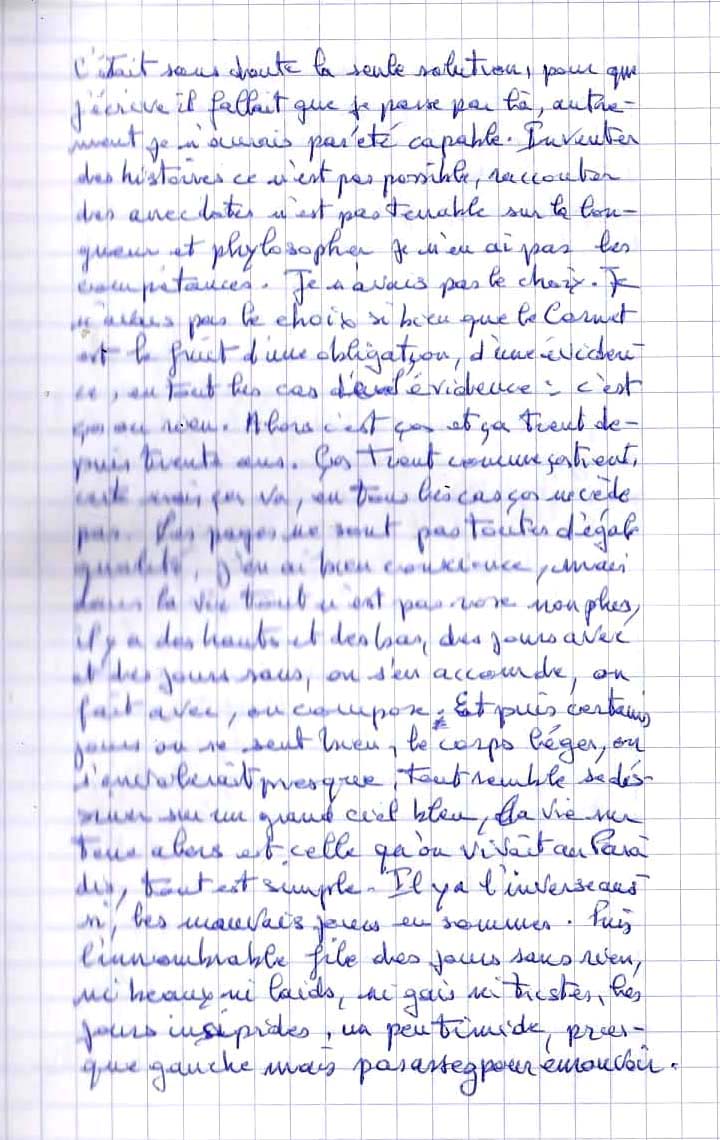 C'était sans doute la seule solution, pour que
j'écrive il fallait que je passe par là, autre-
ment je n'aurais pas été capable. Inventer
des histoires ce n'est pas possible, raconter
des anecdotes n'est pas tenable sur la lon-
gueur et phylosopher je n'en ai pas les
compétances. Je n'avais pas le choix. Je
n'avais pas le choix si bien que le Carnet
est le fruit d'une obligation, d'une éviden-
ce, en tout les cas d'évidence : c'est
ça ou rien. Alors c'est ça et ça tient de-
puis trente ans. Ça tient comme ça tient,
mais ça va, en tous les cas ça ne cède
pas. Les pages ne sont pas toutes d'égale
qualité, j'en ai bien conscience, mais
dans la vie tout n'est pas rose non plus,
il y a des hauts et des bas, des jours avec
et des jours sans, on s'en accomode, on
fait avec, on compose. Et puis certains
jours on se sent bien, le corps léger, on
s'envolerait presque, tout semble se des-
siner sur un grand ciel bleu, la vie sur
Terre alors est celle qu'on vivait au Para
dis, tout est simple. Il y a l'inverse aus
si, les mauvais jours en sommes. Puis
l'innombrable file des jours sans rien,
ni beaux ni laids, ni gais ni tristes, les
jours insipides, un peu timide, pres-
que gauche mais pas assez pour émouvoir.